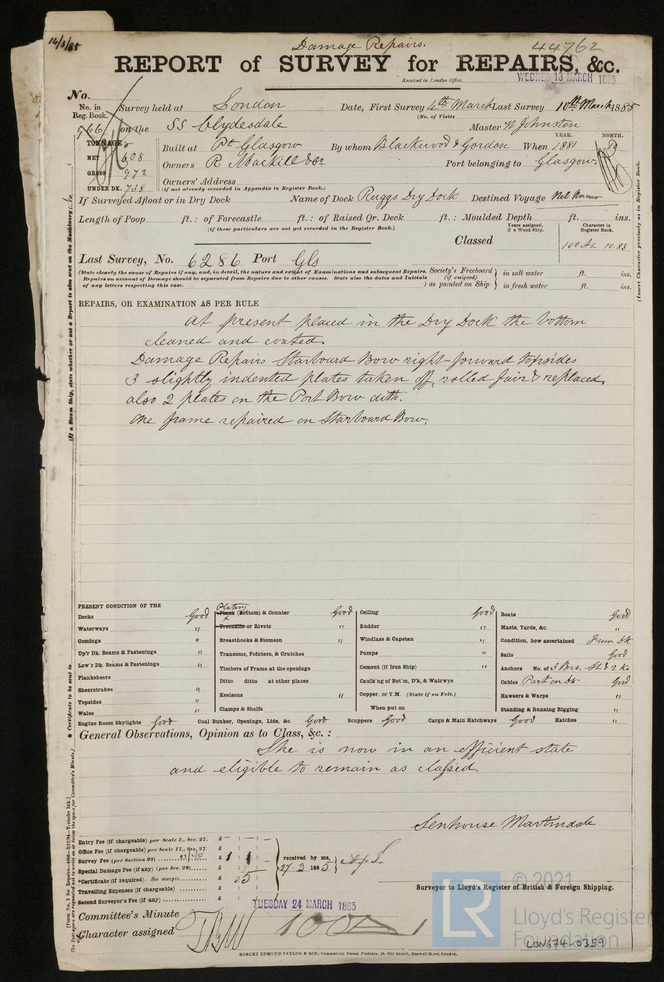 14/3/85
Damage Repairs.
44762
REPORT of SURVEY for REPAIRS, &c.
Received in London Office,
WEDNES 18 MARCH 1885
No.
No. in Reg. Book. Survey held at London Date, First Survey 4th March Last Survey 10th March 1885
(No. of Visits
766 on the SS Clydesdale Master W Johnston
TONNAGE YEAR. MONTH.
Built at Pt Glasgow By whom Blackwood & Gordon When 1881
NET 608
GROSS 972 Owners R Mackill & Co Port belonging to Glasgow
UNDER DK. 758 Owners' Address
(if not already recorded in Appendix to Register Book.)
If Surveyed Afloat or in Dry Dock Name of Dock Ruggs Dry Dock Destined Voyage Not Known
Length of Poop ft. : of Forecastle ft. : of Raised Qr. Deck ft. : Moulded Depth ft. ins.
(If these particulars are not yet recorded in the Register Book.)
Years assigned, if a Wood Ship. Character in Register Book.
Classed 100 A1 10.83
Last Survey, No. 6286 Port Gls
(State clearly the cause of Repairs if any, and, in detail, the nature and extent of Examinations and subsequent Repairs. Society's Freeboard in salt water ft. ins.
Repairs on account of Damage should be separated from Repairs due to other causes. State also the dates and Initials (if assigned)
of any letters respecting this case. ) as painted on Ship in fresh water ft. ins.
REPAIRS, OR EXAMINATION AS PER RULE
At present placed in the Dry Dock the bottom
cleaned and coated.
Damage Repairs Starboard Bow right forward topsides
3 slightly indented plates taken off, rolled fair & replaced,
also 2 plates on the Port Bow ditto.
One frame repaired on Starboard Bow.
PRESENT CONDITION OF THE
Decks Good
Waterways "
Comings "
Up'r Dk. Beams & Fastenings "
Low'r Dk. Beams & Fastenings "
Planksheers
Sheerstrakes "
Topsides "
Wales "
Plating
Plank (Bottom) & Counter Good
Treenails or Rivets "
Breasthooks & Stemson "
Transoms, Pointers, & Crutches
Timbers of Frame at the openings
Ditto ditto at other places
Keelsons "
Clamps & Shelfs
Ceiling Good
Rudder "
Windlass & Capstan "
Pumps "
Cement (if Iron Ship) "
Caulk'ng of Bot'm, D'k, & Watrwys
Copper, or Y.M. (State if on Felt.)
When put on
Boats Good
Masts, Yards, &c. "
Condition, how ascertained From Dk
Sails Good
Anchors No. of 3 Brs, St & 2 Ks
Cables Part on Dk Good
Hawsers & Warps "
Standing & Running Rigging "
Engine Room Skylights Good Coal Bunker, Openings, Lids, &c. Good Scuppers Good Cargo & Main Hatchways Good Hatches "
General Observations, Opinion as to Class, &c. :
She is now in an efficient state
and eligible to remain as classed.
Senhouse Martindale
Surveyor to Lloyd's Register of British & Foreign Shipping.
Entry Fee (if chargeable) per Scale I., Sec. 27. £ : :
Office Fee (if chargeable) per Scale II., Sec. 27. £ : :
Survey Fee (per Section 28) £ 1 : 1 :
Special Damage Fee (if any) (per Sec. 28) £ : :
*Certificate (if required). See margin. : 5 :
Travelling Expenses (if chargeable)
Second Surveyor's Fee (if any)
received by me,
27.3 1885
TUESDAY 24 MARCH 1885
Committee's Minute
Character assigned 100 A 1
ROBERT EDMUND TAYLOR & SON, Commercial Steam Printers, 19, Old Street, Goswell Road, London.
LR
© 2021
Lloyd's Register
Foundation
LON674-0359